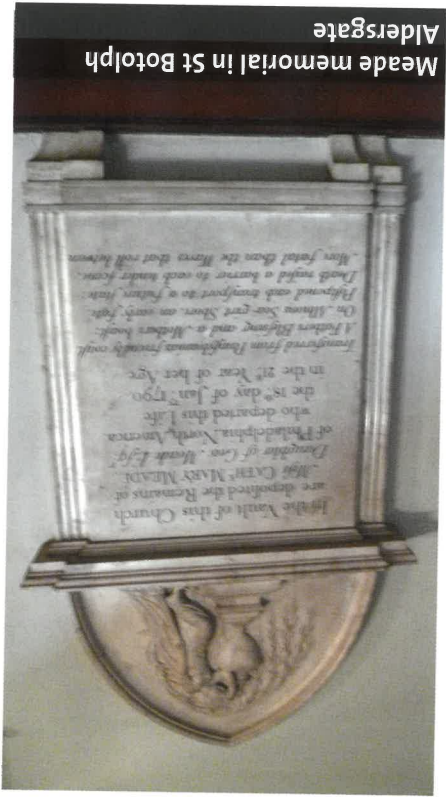 In the Vault of this Church
are deposited the Remains of
Miss CATHe MARY MEADE
Daughter of Geo. Meade Esqr.
of Philadelphia, North America
who departed this Life
the 18th day of Jany 1790
in the 21st Year of her Age
Transferred from Pensylvanias friendly coast,
A Fathers Blessing and a Mothers boast,
On Albions Sea girt Shore an early fate
Postponed each transport to a future state
Death raised a barrier to each tender scene,
More fatal than the Waves that roll between
Meade memorial in St Botolph
Aldersgate